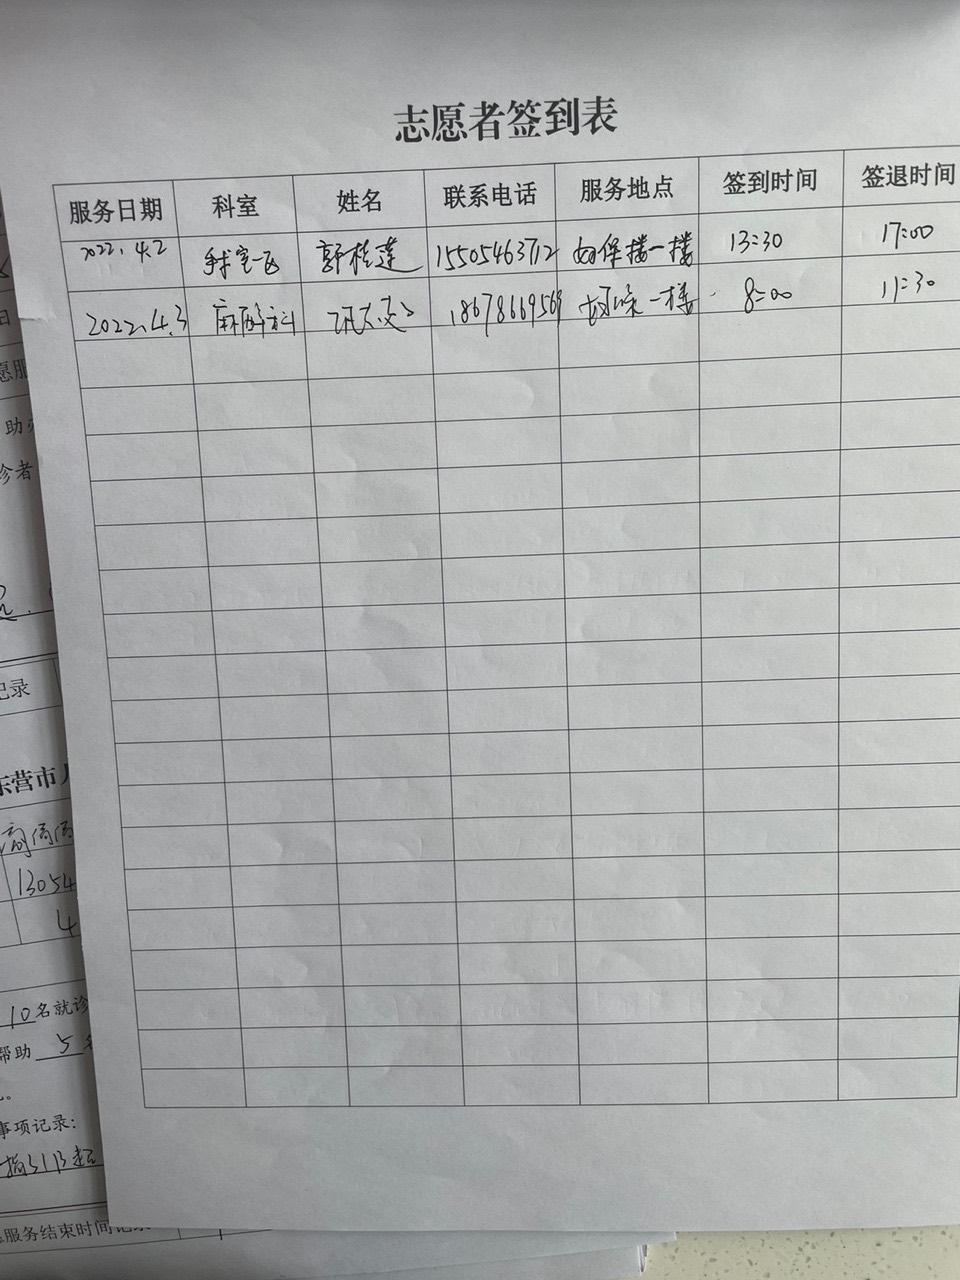 志愿者签到表
服务日期 科室 姓名 联系电话 服务地点 签到时间 签退时间
2022.4.2 手术室一区 郭桂莲 15505463712 妇保楼一楼 13:30 17:00
2022.4.3 麻醉科 18678669569 妇保一楼 8:00 11:30
日
愿服
助
诊者
记录
东营市
13054
4
10名就诊
帮助 5
事项记录:
服务结束时间记录